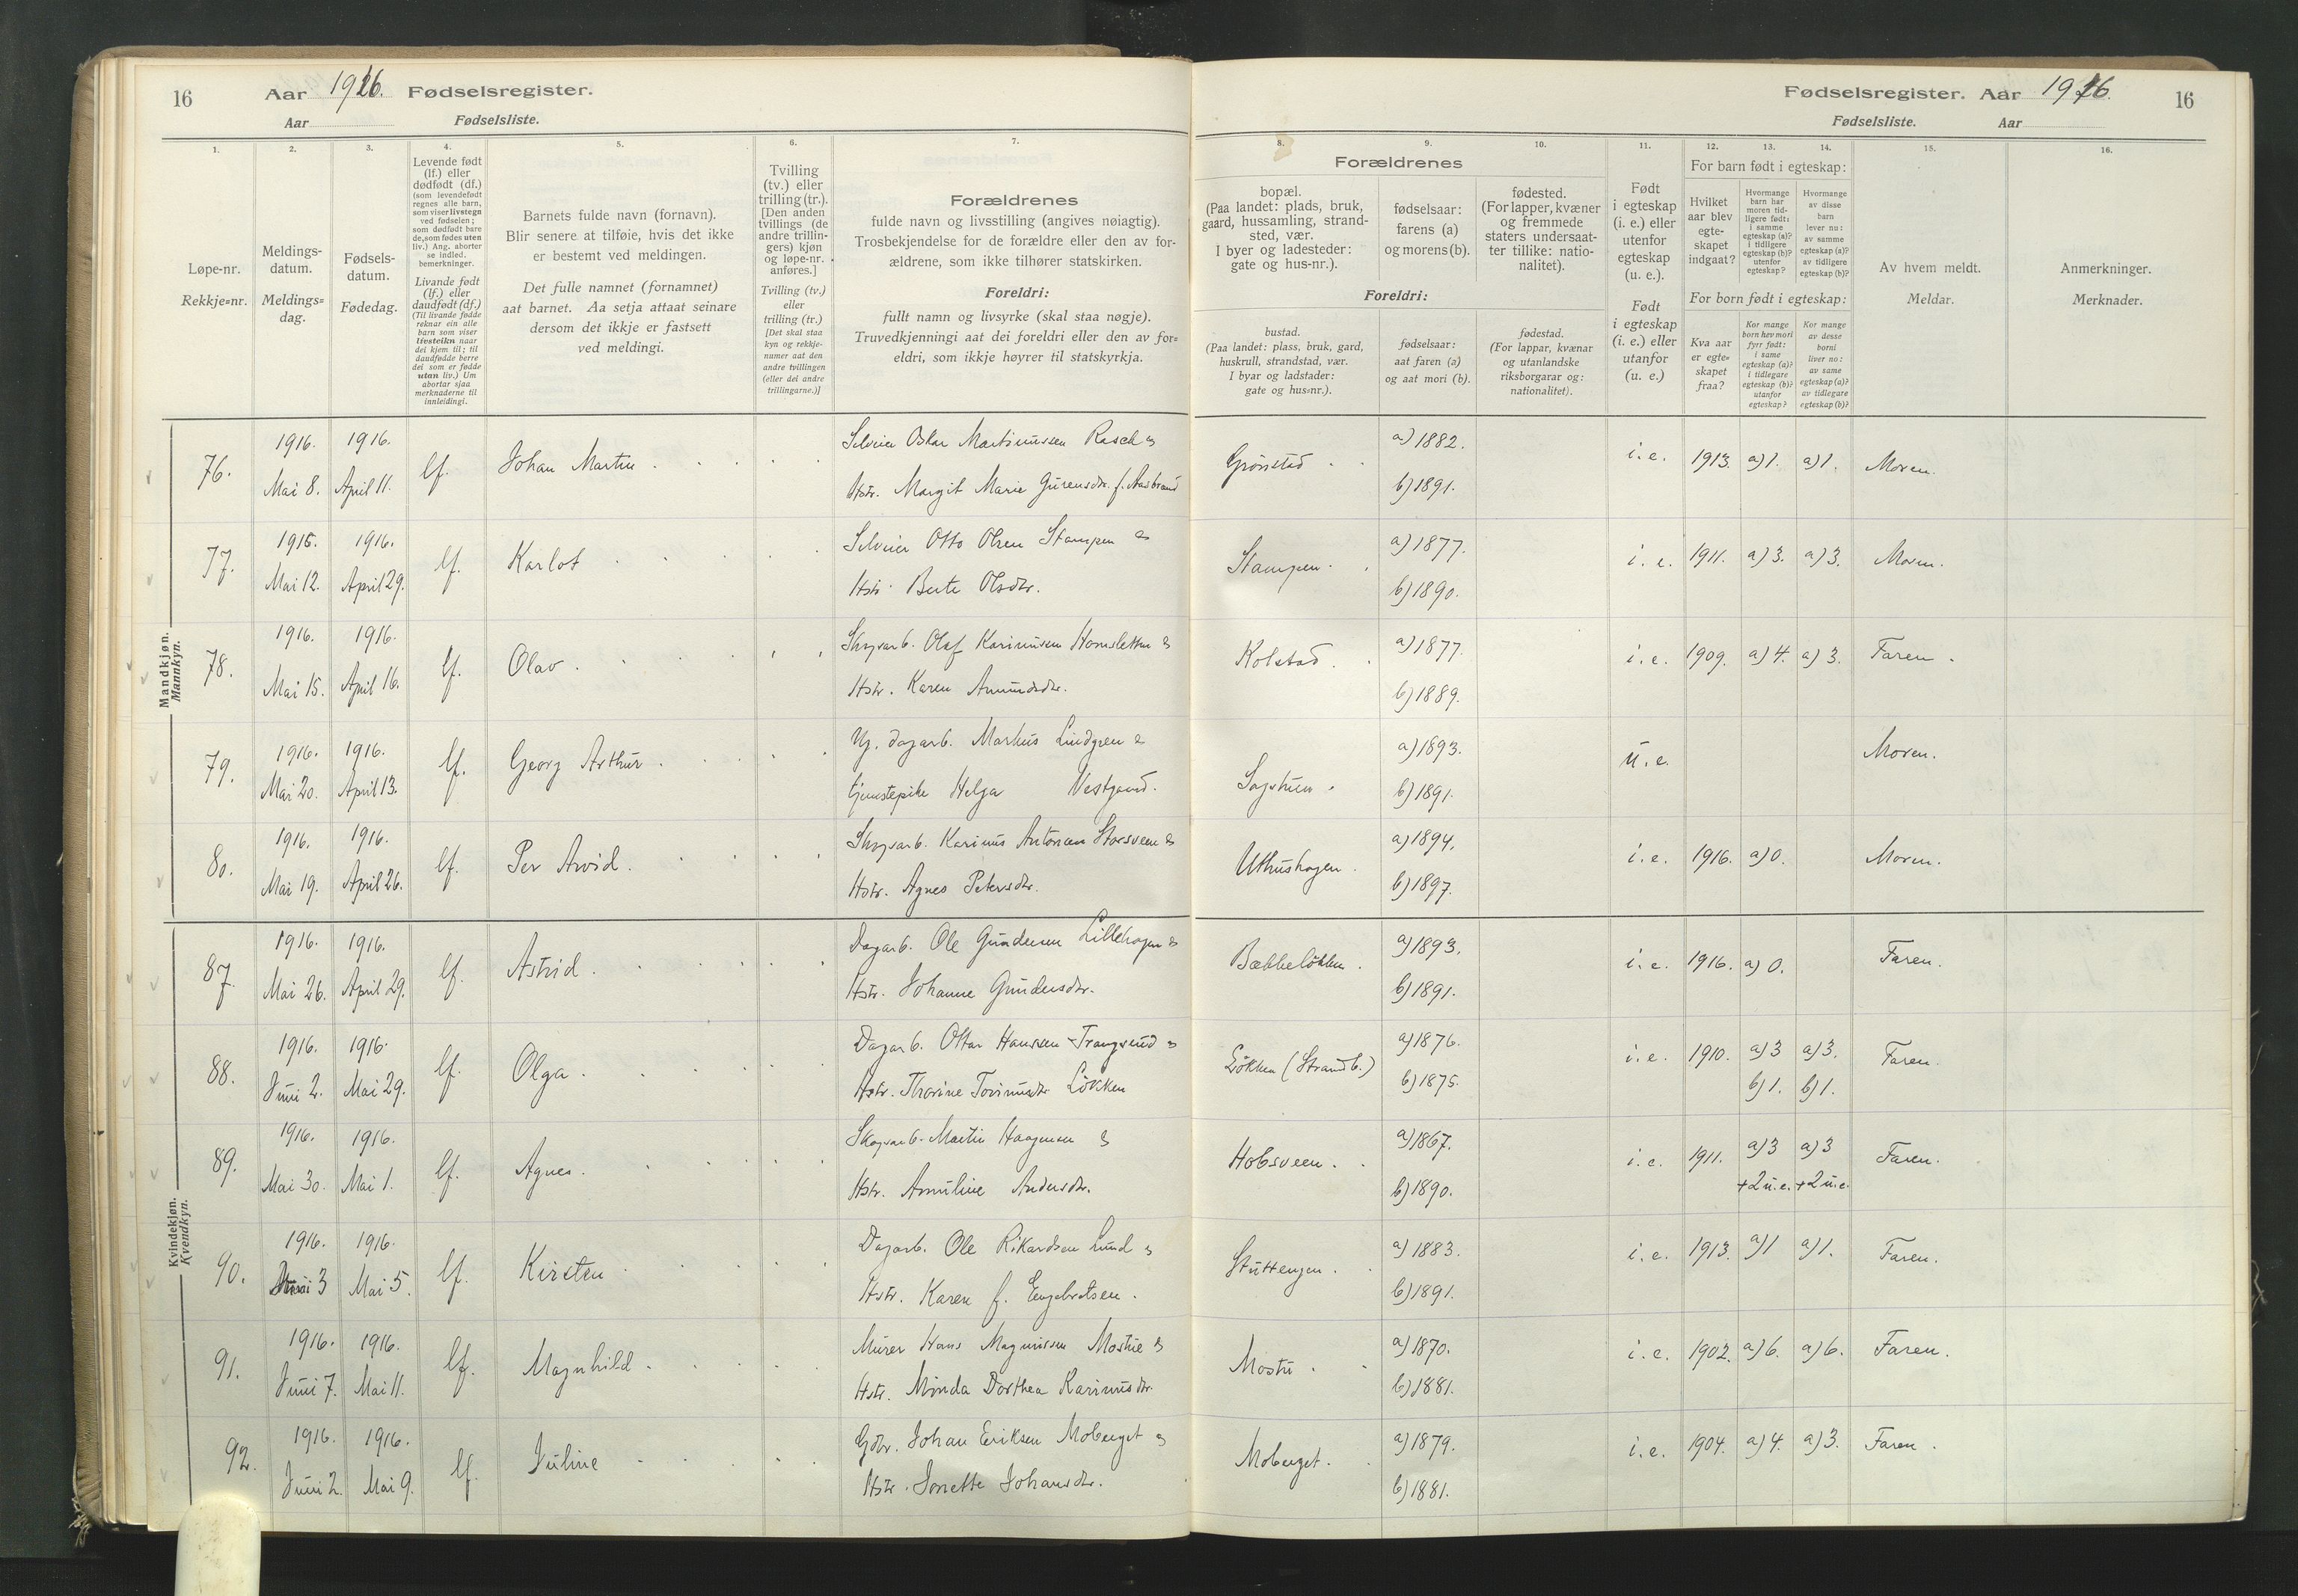 16
Aar 1916. Fødselsregister.
Aar Fødselsliste.
Fødselsregister. Aar 1916.
16
Fødselsliste. Aar
1.
Løpe-nr.
Rekkje=nr.
2.
Meldings-
datum.
Meldings=
dag.
3.
Fødsels-
datum.
Fødedag.
4.
Levende født
(lf.) eller
dødfødt (df.)
(som levendefødt
regnes alle barn,
som viser livstegn
ved fødselen;
som dødfødt bare
de, som fødes uten
liv.) Ang. aborter
se indled.
bemerkninger.
Livande født
(lf.) eller
daudfødt (df.)
(Til livande fødde
reknar ein alle
barn som viser
livsteikn naar
dei kjem til; til
daudfødde berre
dei som er fødde
utan liv.) Um
abortar sjaa
merknaderne til
innleidingi.
5.
Barnets fulde navn (fornavn).
Blir senere at tilføie, hvis det ikke
er bestemt ved meldingen.
Det fulle namnet (fornamnet)
aat barnet. Aa setja attaat seinare
dersom det ikkje er fastsett
ved meldingi.
6.
Tvilling
(tv.) eller
trilling (tr.).
[Den anden
tvillings (de
andre trillin-
gers) kjøn
og løpe-nr.
anføres.]
Tvilling (tv.)
eller
trilling (tr.)
[Det skal staa
kyn og rekkje-
numer aat den
andre tvillingen
(eller dei andre
trillingarne.)]
7.
Forældrenes
fulde navn og livsstilling (angives nøiagtig).
Trosbekjendelse for de forældre eller den av for-
ældrene, som ikke tilhører statskirken.
Foreldri:
fullt namn og livsyrke (skal staa nøgje).
Truvedkjenningi aat dei foreldri eller den av for=
eldri, som ikkje høyrer til statskyrkja.
8. 9. 10.
Forældrenes
bopæl.
(Paa landet: plads, bruk,
gaard, hussamling, strand-
sted, vær.
I byer og ladesteder:
gate og hus-nr.).
fødselsaar:
farens (a)
og morens (b).
fødested.
(For lapper, kvæner
og fremmede
staters undersaat-
ter tillike: natio-
nalitet).
Foreldri:
bustad.
(Paa landet: plass, bruk, gard,
huskrull, strandstad, vær.
I byar og ladstader:
gate og hus=nr.).
fødselsaar:
aat faren (a)
og aat mori (b).
fødestad.
(For lappar, kvænar
og utanlandske
riksborgarar og:
nationalitet).
11.
Født
i egteskap
(i. e.) eller
utenfor
egteskap
(u. e.).
Født
i egteskap
(i. e.) eller
utanfor
(u. e.)
12. 13. 14.
For barn født i egteskap:
Hvilket
aar blev
egte-
skapet
indgaat?
Hvormange
barn har
moren tid-
ligere født:
i samme
egteskap (a)?
i tidligere
egteskap (b)?
utenfor
egteskap?
Hvormange
av disse
barn
lever nu:
av samme
egteskap (a)?
av tidligere
egteskap (b)?
For born født i egteskap:
Kva aar
er egte=
skapet
fraa?
Kor mange
born hev mori
fyrr født:
i same
egteskap (a)?
i tidlegare
egteskap (b)?
utanfor
egteskap?
Kor mange
av desse
borni
liver no:
av same
egteskap (a)?
av tidlegare
egteskap (b)?
15.
Av hvem meldt.
Meldar.
16.
Anmerkninger.
Merknader.
Mandkjøn.
Mannkyn.
76. 1916. Mai 8. 1916. April 11. lf. Johan Martin
Selveier Oskar Martinussen Rasch &
Hstr. Margit Marie
Grønstad a) 1882. b) 1891. i. e. 1913. a) 1. a) 1. Moren.
77. 1916. Mai 12. 1916. April 29. lf. Karlot
Selveier Otto Olsen Stampen &
Hstr. Berte Olsdtr.
Stampen. a) 1877. b) 1890. i. e. 1911. a) 3. a) 3. Moren.
78. 1916. Mai 15. 1916. April 16. lf. Olav
Skogsarb. Olaf Karinusen Hornsletten &
Hstr. Karen Amundsdtr.
Kolstad. a) 1877. b) 1889. i. e. 1909. a) 4. a) 3. Faren.
79. 1916. Mai 20. 1916. April 13. lf. Georg Arthur
Ug. dagarb. Markus Lindgren &
tjenestepike Helga Vestgaard.
Sagstuen. a) 1893. b) 1891. u. e. Moren.
80. 1916. Mai 19. 1916. April 26. lf. Per Arvid.
Skogsarb. Karinus Antonsen Storsveen &
Hstr. Agnes Petersdtr.
Uthushagen. a) 1894. b) 1897. i. e. 1916. a) 0. Moren.
Kvindekjøn.
Kvendkyn.
87. 1916. Mai 26. 1916. April 29. lf. Astrid.
Dagarb. Ole Gundersen Lillehagen &
Hstr. Johanne Gundersdtr.
Bækkeløkken. a) 1893. b) 1891. i. e. 1916. a) 0. Faren.
88. 1916. Juni 2. 1916. Mai 29. lf. Olga.
Dagarb. Ottar Hanssen Trangsrud &
Hstr. Thorine Løkken
Løkken (Strandb.) a) 1876. b) 1875. i. e. 1910. a) 3 b) 1. a) 3. b) 1. Faren.
89. 1916. Mai 30. 1916. Mai 1. lf. Agnes.
Skogsarb. Martin Haagensen &
Hstr. Andersdtr.
Hobsveen. a) 1867. b) 1890. i. e. 1911. a) 3 + 2 u. e. a) 3 + 2 u. e. Faren.
90. 1916. Juni 3 1916. Mai 5. lf. Kirsten
Dagarb. Ole Rikardsen Lund &
Hstr. Karen f. Engebretsen.
Stuttengen. a) 1883. b) 1891. i. e. 1913. a) 1 a) 1. Faren.
91. 1916. Juni 7. 1916. Mai 11. lf. Magnhild.
Murer Hans Magnussen Mostue &
Hstr. Minda Dorthea Karinusdtr.
Mostu. a) 1870. b) 1881. i. e. 1902. a) 6. a) 6. Faren.
92. 1916. Juni 2. 1916. Mai 9. lf. Juline
Gdbr. Johan Eriksen Moberget &
Hstr. Jonette Johansdtr.
Moberget. a) 1879. b) 1881. i. e. 1904. a) 4. a) 3. Faren.